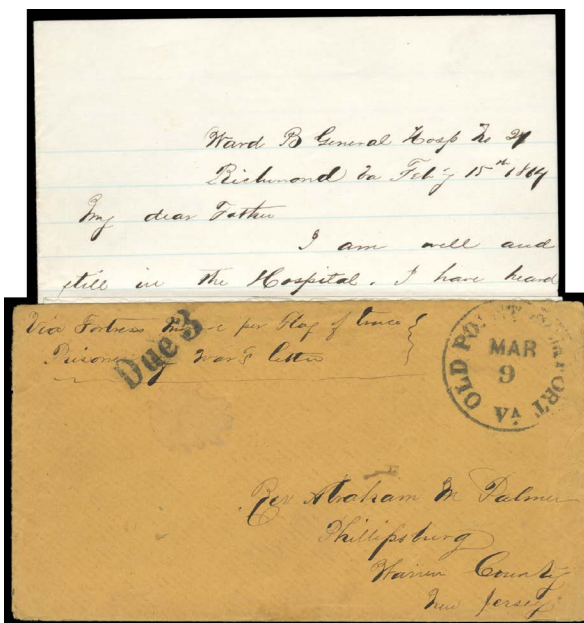 Ward B General Hosp No 21
Richmond Va Feby 15th 1864
My dear Father
I am well and
still in the Hospital. I have heard
Via Fortress per Flag of truce
Prisoner of War's letter
Due 3
OLD POINT COMFORT VA
MAR
9
Rev Abraham M Palmer
Phillipsburg
Warren County
New Jersey